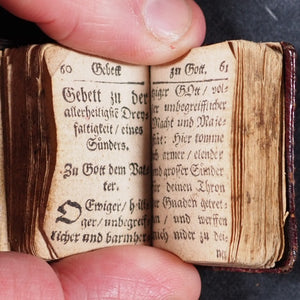 60 Gebett
Gebett zu der
allerheiligste Drey-
faltigkeit / eines
Sünders.
Zu Gott dem Vat-
ter.
O Ewiger /
ger / unbegreif-
licher und barmher-
zu Gott. 61
GOtt / vol-
ler unbegreifflicher
Macht und Maie-
stät: Hier komme
ich armer / elender
und grosser Sünder
für deinen Thron
der Gnaden getret-
ten / und werffen
mich nider zu dei-